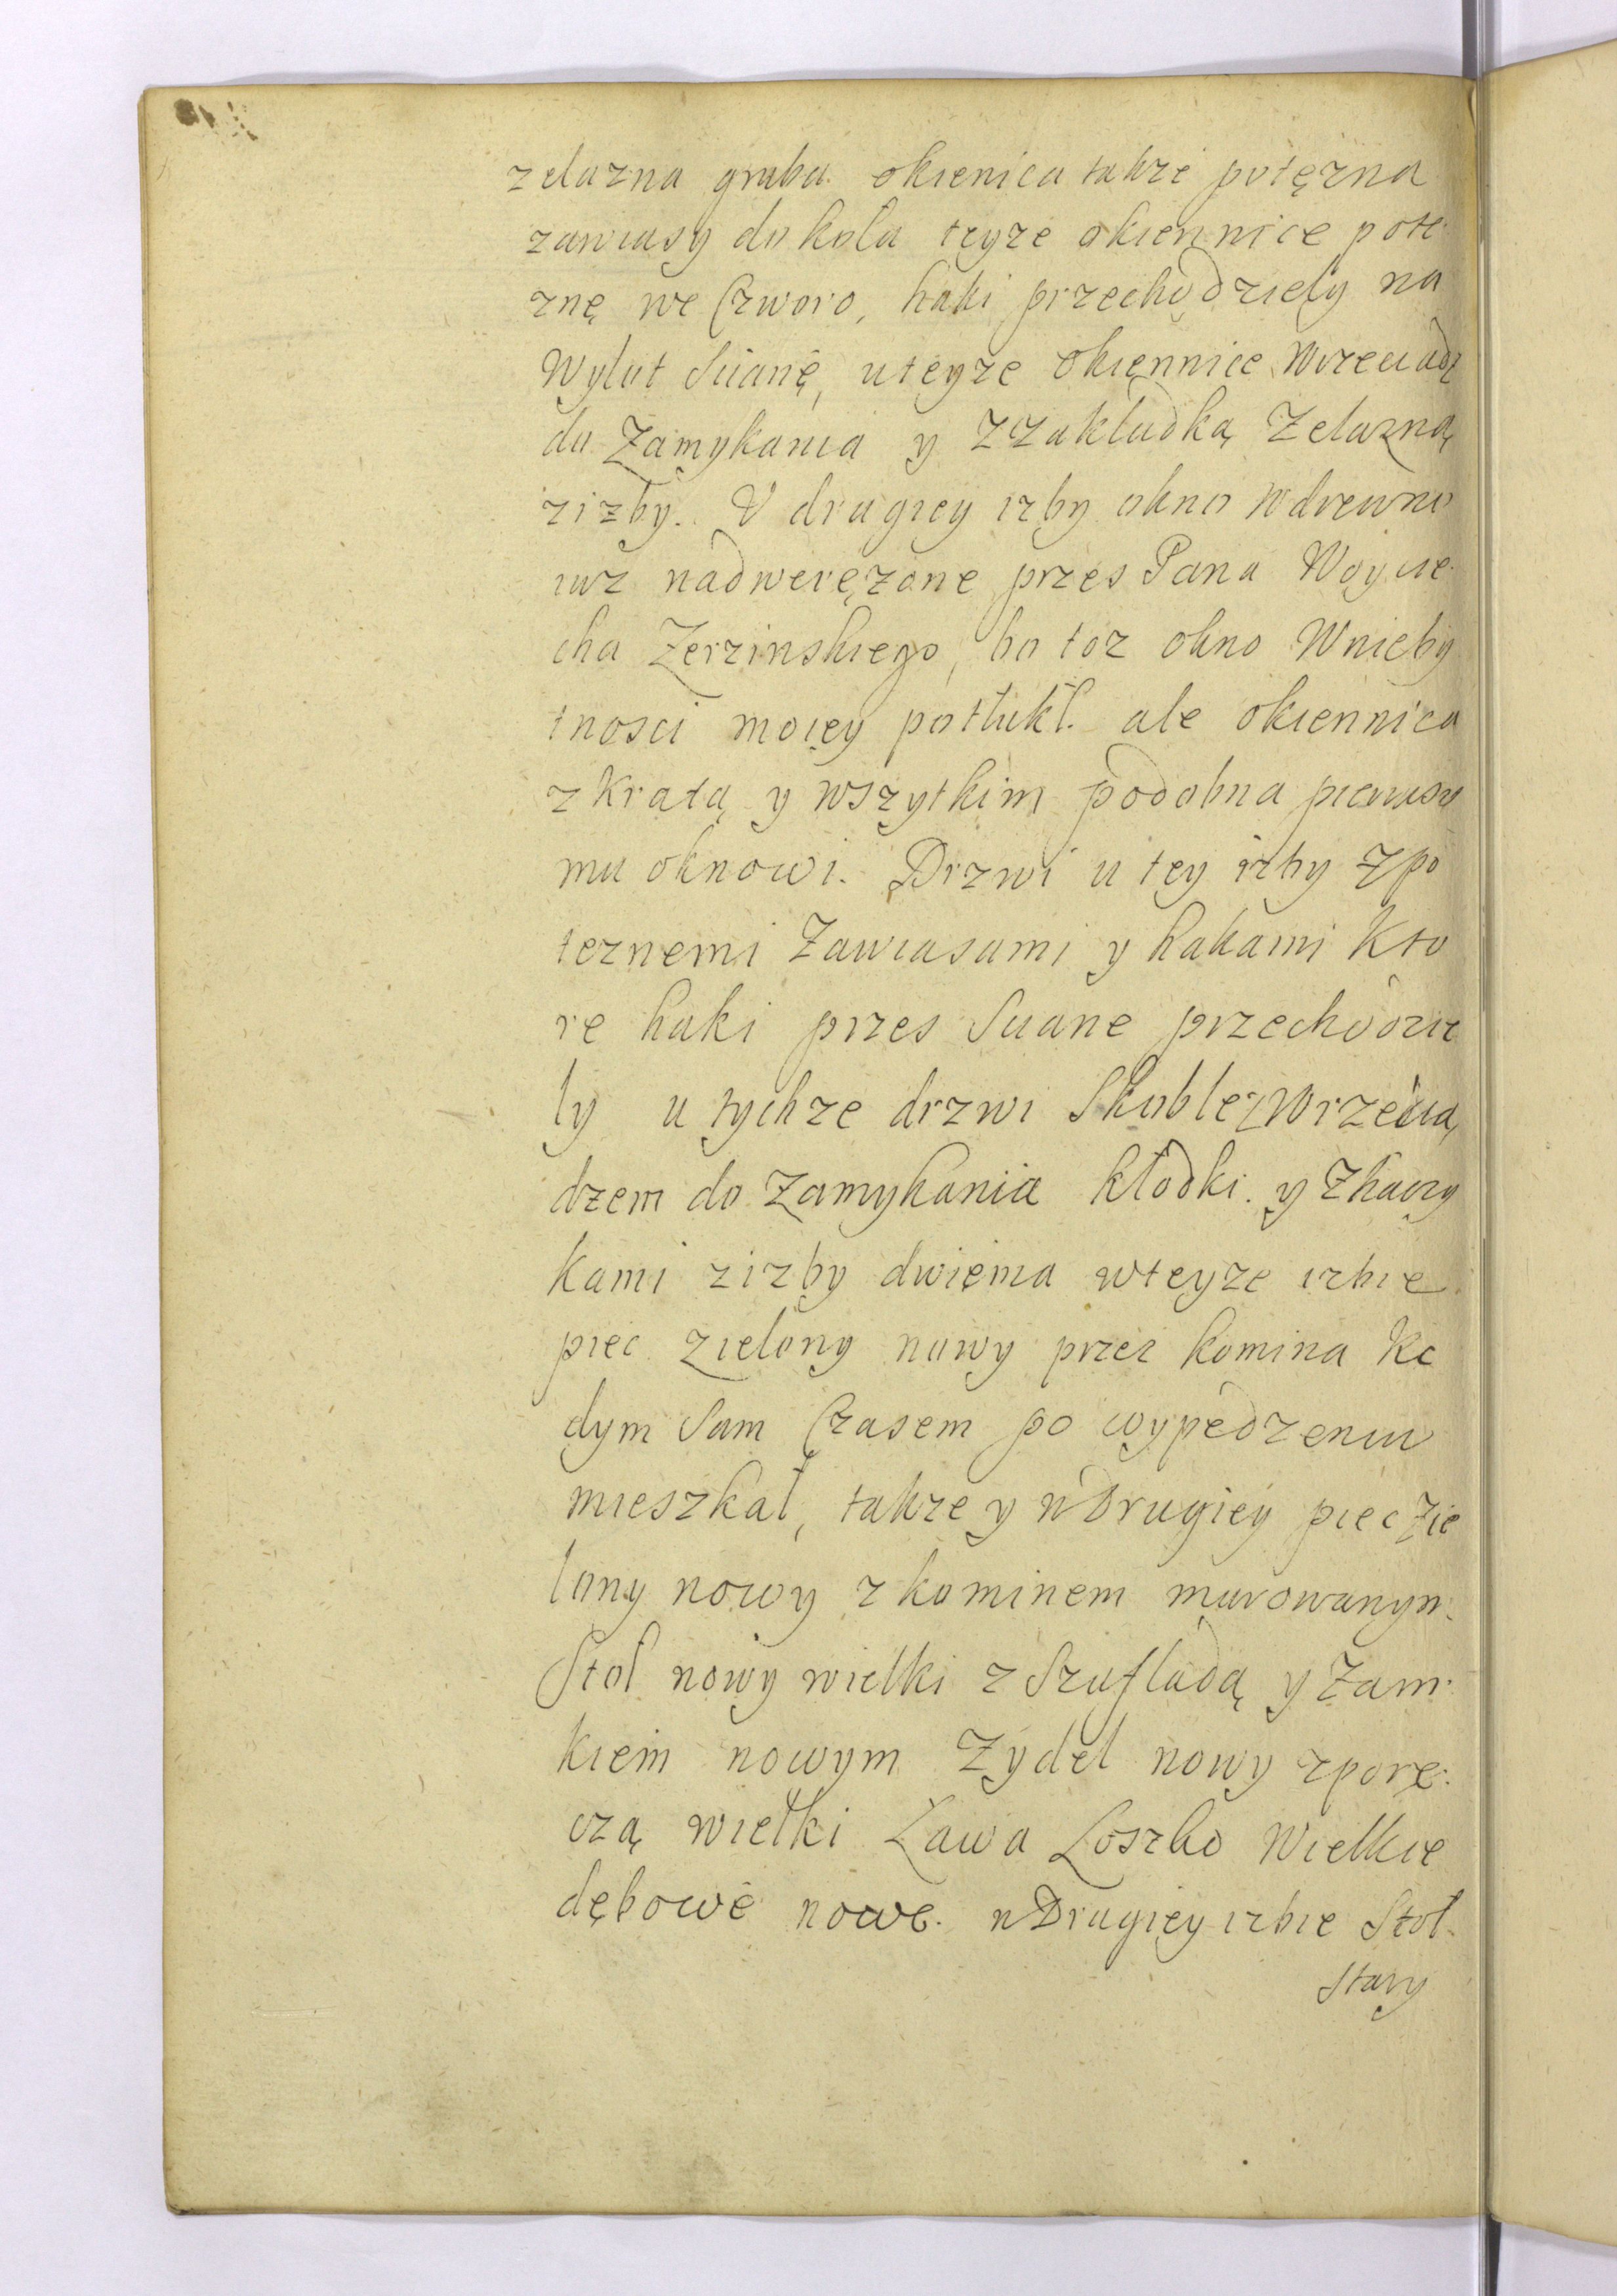 zelazna gruba okienica takze potęzna
zawiasy do kola teyze okiennice pote
znę we Czworo, haki przechodziely na
Wylot Scianę, u teyze okiennice Wrzeciadz
do Zamykania y Z Zakladką Zelazną
z izby. V drugiey izby okno w drewno
iuz nadweręzone przes Pana Woycie
cha Zerzinskiego, bo toz okno W nieby
tnosci moiey potłukł. ale okiennica
z kratą y wszytkim podobna pierwsze
mu oknowi. Drzwi u tey izby z po
teznemi Zawiasami y hakami Kto
re haki przes Sciane przechodzie
ly u tychze drzwi Skoble z Wrzecia,
dzem do Zamykania kłodki. y Z haczy
kami z izby dwiema w teyze izbie
piec zielony nowy przez komina kę
dym Sam Czasem po wypedzeniu
mieszkał, takze y w Drugiey piec zie
lony nowy z kominem murowanym.
Stol nowy wielki z Szufladą y Zam
kiem nowym Zydel nowy z porę
czą wielki Ława Loszko Wielkie
dębowe nowe. w Drugiey izbie Stol
Stary